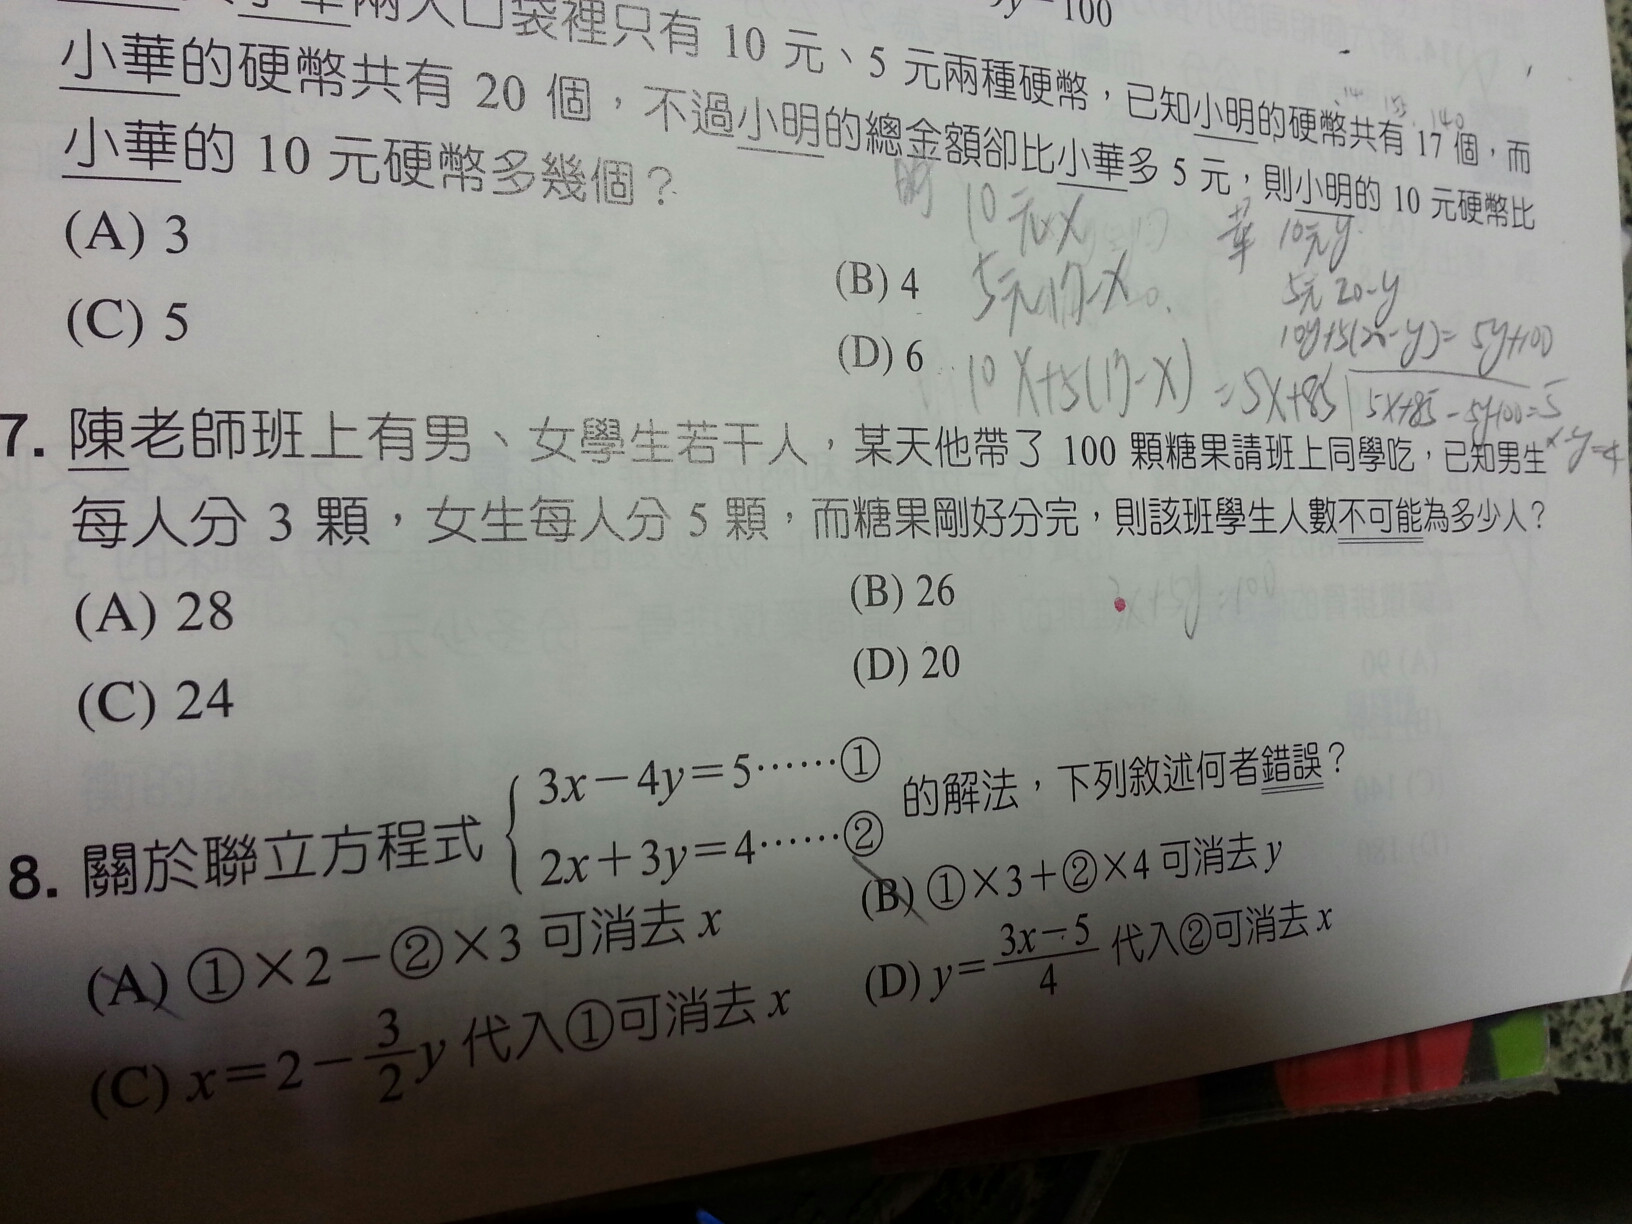 兩人口袋裡只有 10 元、5 元兩種硬幣，已知小明的硬幣共有 17 個，而
小華的硬幣共有 20 個，不過小明的總金額卻比小華多 5 元，則小明的 10 元硬幣比
小華的 10 元硬幣多幾個？
(A) 3
(B) 4
(C) 5
(D) 6
明 10元x
5元17-x
10x+5(17-x) =5x+85
華 10元y
5元 20-y
10y+5(20-y)=5y+100
5x+85-5y+100=5
x-y=4
7. 陳老師班上有男、女學生若干人，某天他帶了 100 顆糖果請班上同學吃，已知男生
每人分 3 顆，女生每人分 5 顆，而糖果剛好分完，則該班學生人數不可能為多少人？
(A) 28
(B) 26
(C) 24
(D) 20
3x+5y=100
8. 關於聯立方程式 3x－4y＝5……①
2x＋3y＝4……② 的解法，下列敘述何者錯誤？
(A) ①×2－②×3 可消去 x
(B) ①×3＋②×4 可消去 y
(C) x＝2－3/2y 代入①可消去 x
(D) y＝3x－5/4 代入②可消去 x